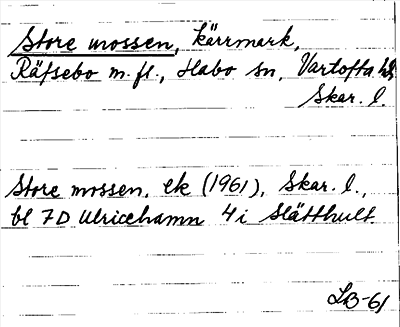 Store mossen, kärrmark,
Räfsebo m.fl., Habo sn, Vartofta hd,
Skar. l.
Store mossen, ek (1961), Skar. l.,
bl 7D Ulricehamn 4i Slätthult
LB-61